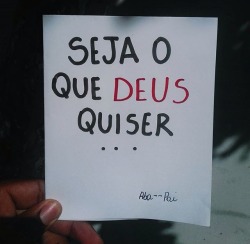 SEJA O
QUE DEUS
QUISER
...
Aba-- Pai